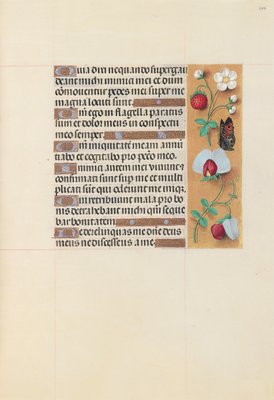 Quia dixi nequando supergau
deant michi inimici mei et dum
commouentur pedes mei super me
magna locuti sunt
m ego in flagella paratus
sum et dolor meus in conspectu
meo semper
m iniquitatem meam annū
tiabo et cogitabo pro peccō meo.
nimici autem mei viuunt et
confirmati sunt super me et multi
plicati sūt qui oderunt me iniq̄.
ui retribuunt mala pro bo
nis detrahebant michi qm̄ seque
bar bonitatem
e derelinquas me dn̄e deus
meus ne discesseris a me